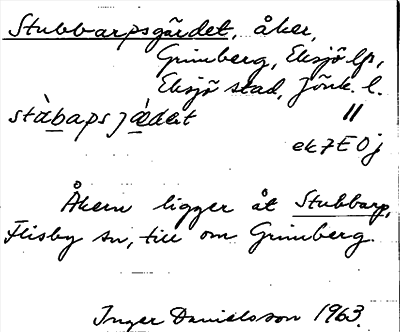 Stubbarpsgärdet, åker,
Grimberg, Eksjö lfs,
Eksjö stad, Jönk. l.
stàbapsjǽdet "
ek 7E0j
Åkern ligger åt Stubbarp,
Flisby sn, till om Grimberg.
Inger Danielsson 1963.